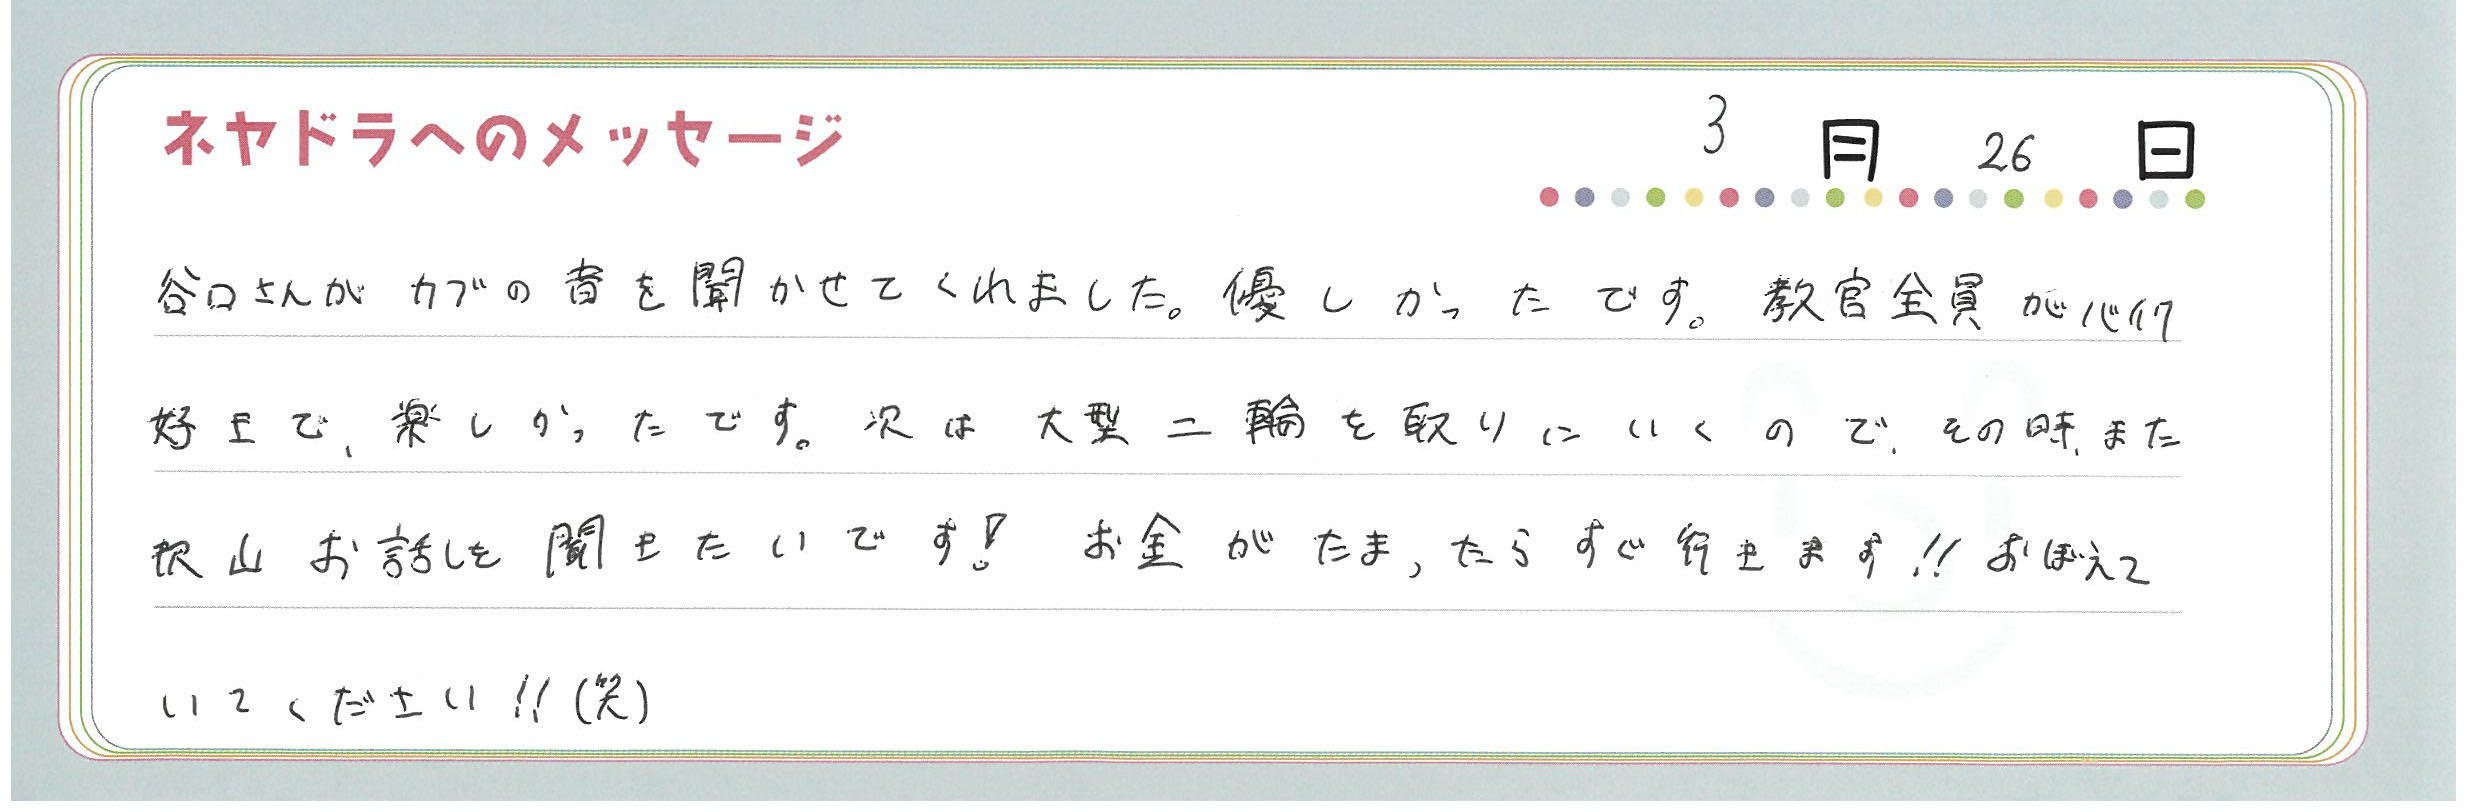 ネヤドラへのメッセージ
3月26日
谷口さんがカブの音を聞かせてくれました。優しかったです。教官全員がバイク
好きで、楽しかったです。次は大型二輪を取りにいくので、その時、また
沢山お話しを聞きたいです! お金がたまったらすぐ行きます!!おぼえて
いてください!!(笑)